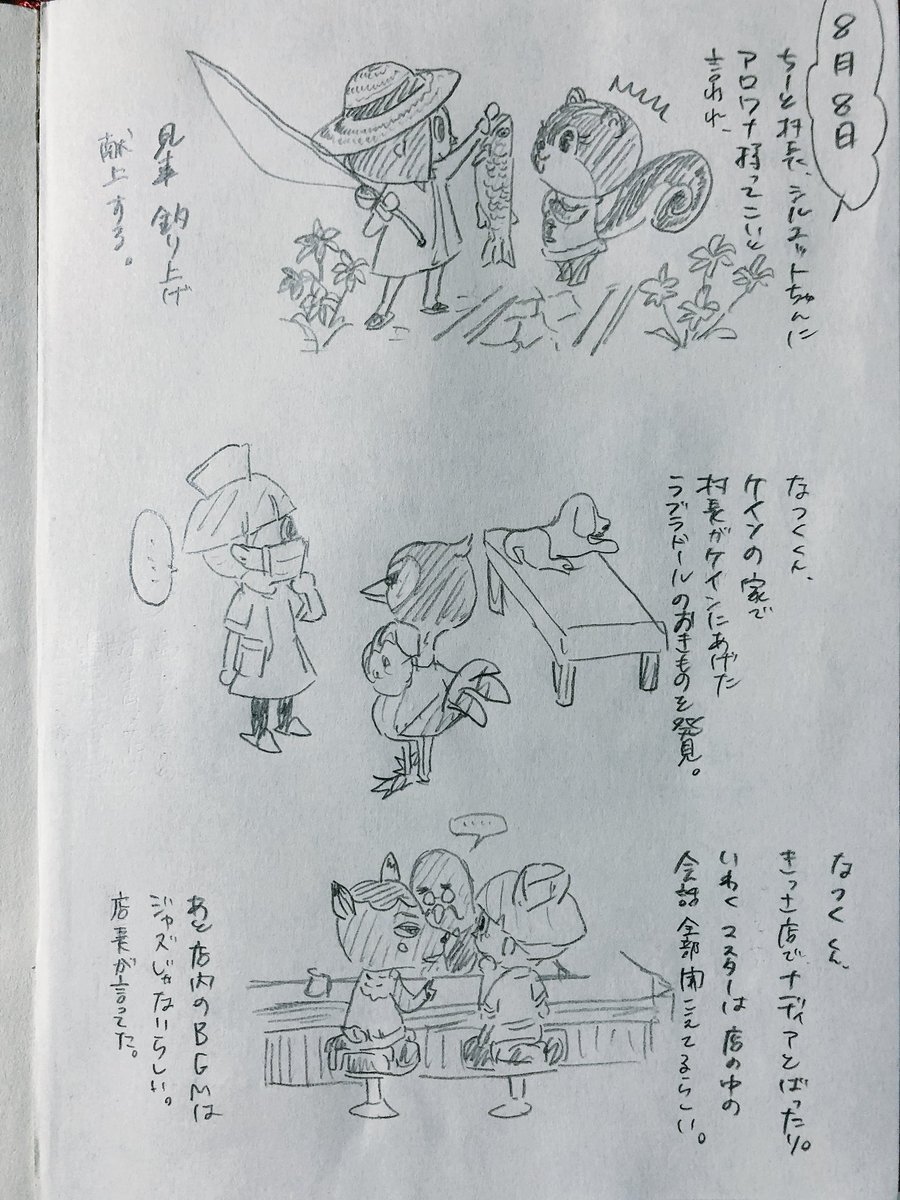 8月8日
ちーと村長、シルエットちゃんに
アロワナ持ってこいと
言われ、
見事釣り上げ
献上する。
なつくん、
ケインの家で
村長がケインにあげた
ラブラドールのおきものを発見。
……
なつくん、
きっさ店でナディアとばったり。
いわくマスターは店の中の
会話全部聞こえてるらしい。
……
あと店内のBGMは
ジャズじゃないらしい。
店長が言ってた。